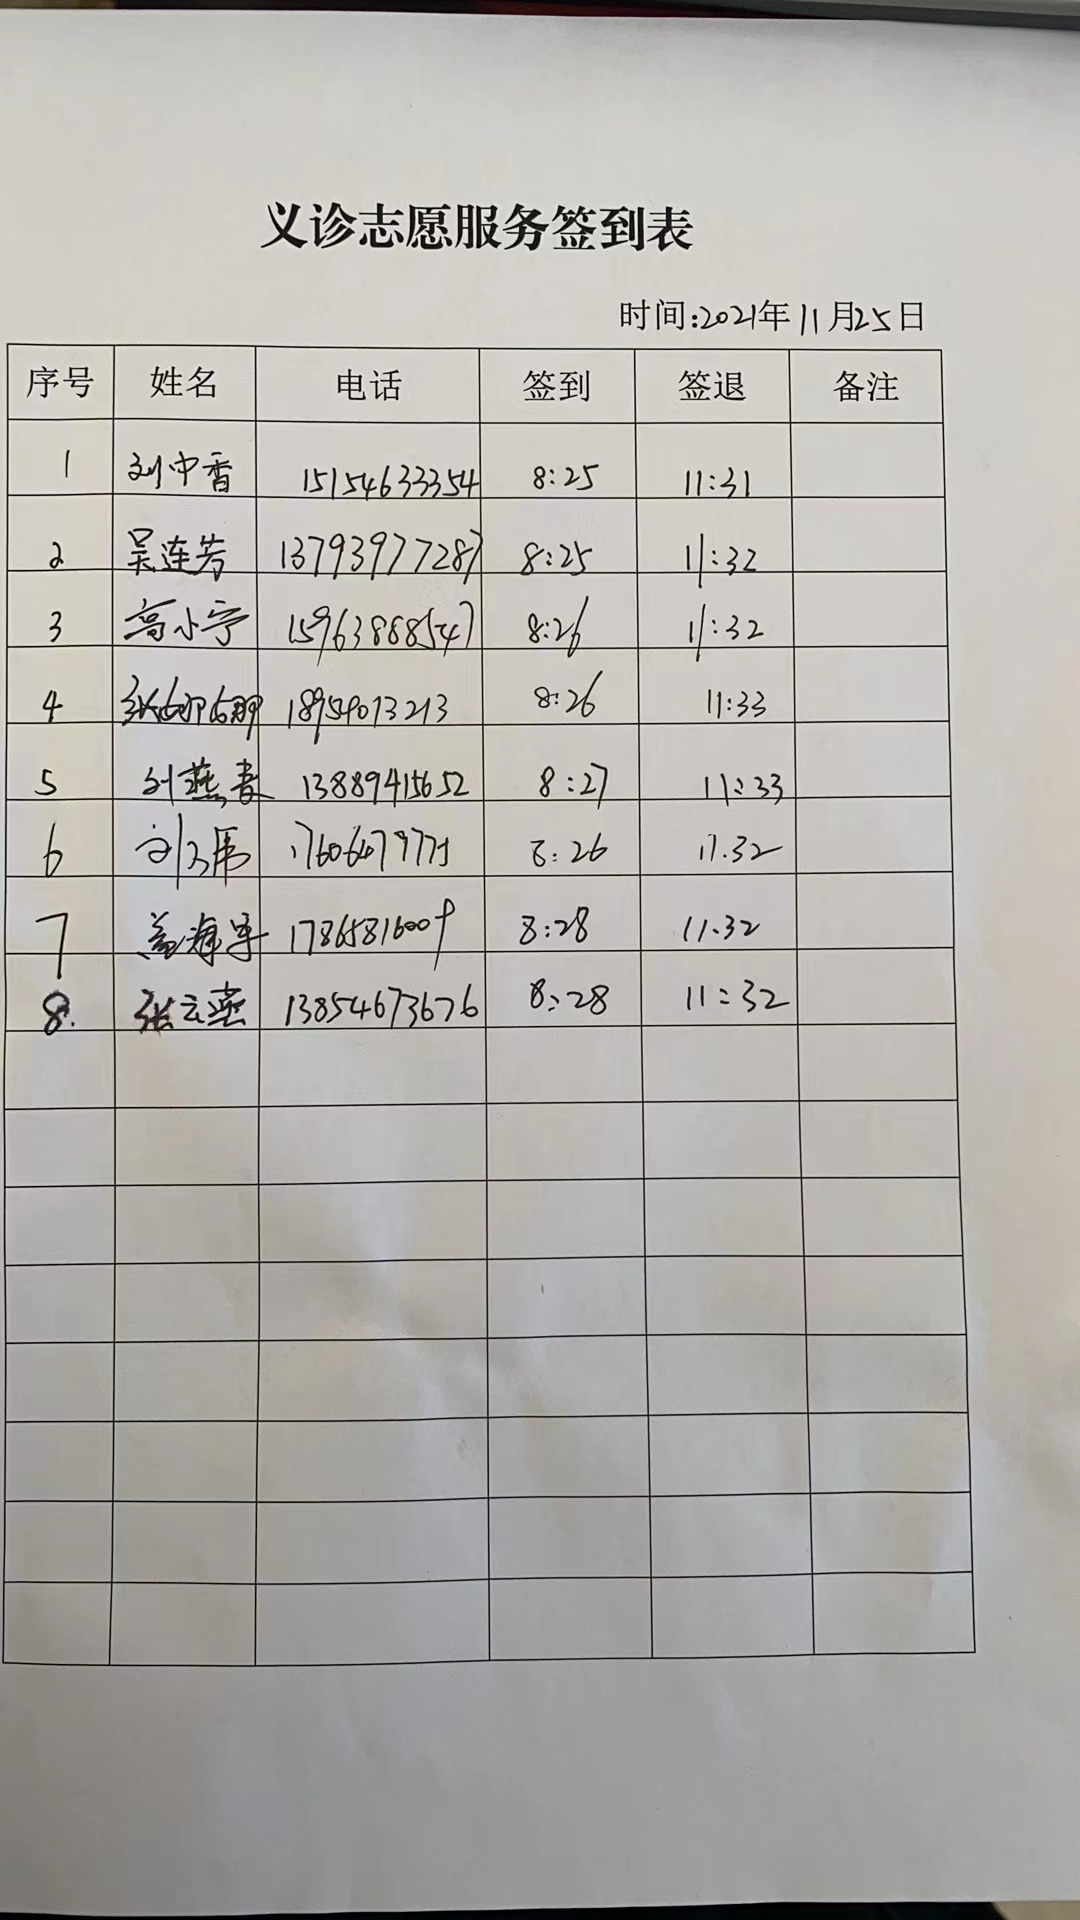 义诊志愿服务签到表
时间:2021年11月25日
序号 姓名 电话 签到 签退 备注
1 刘中香 15154633354 8:25 11:31
2 吴连芳 13793977287 8:25 11:32
3 高小宁 15963888547 8:26 11:32
4 张娜娜 18954073213 8:26 11:33
5 刘燕春 13889415652 8:27 11:33
6 8:26 11.32
7 盖海军 17865816009 8:28 11.32
8. 张云燕 13854673676 8:28 11:32